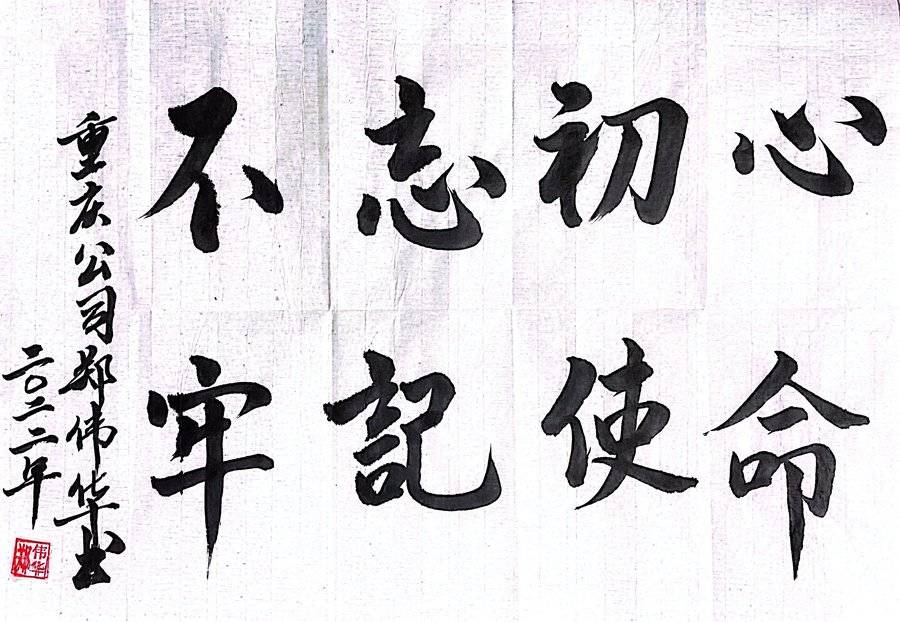 不忘初心
牢記使命
重庆公司郑伟华书
二〇二二年
郑伟华